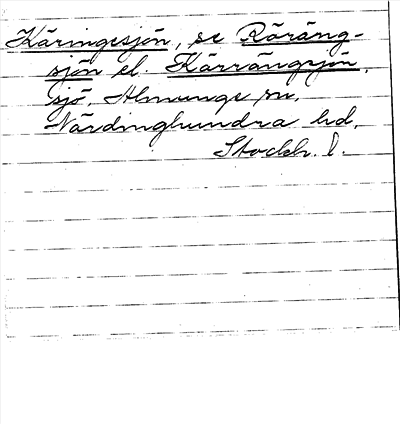 Käringesjön, se Röräng-
sjön el. Kärrängsjön,
sjö, Almunge sn,
Närdinghundra hd,
Stockh. l.